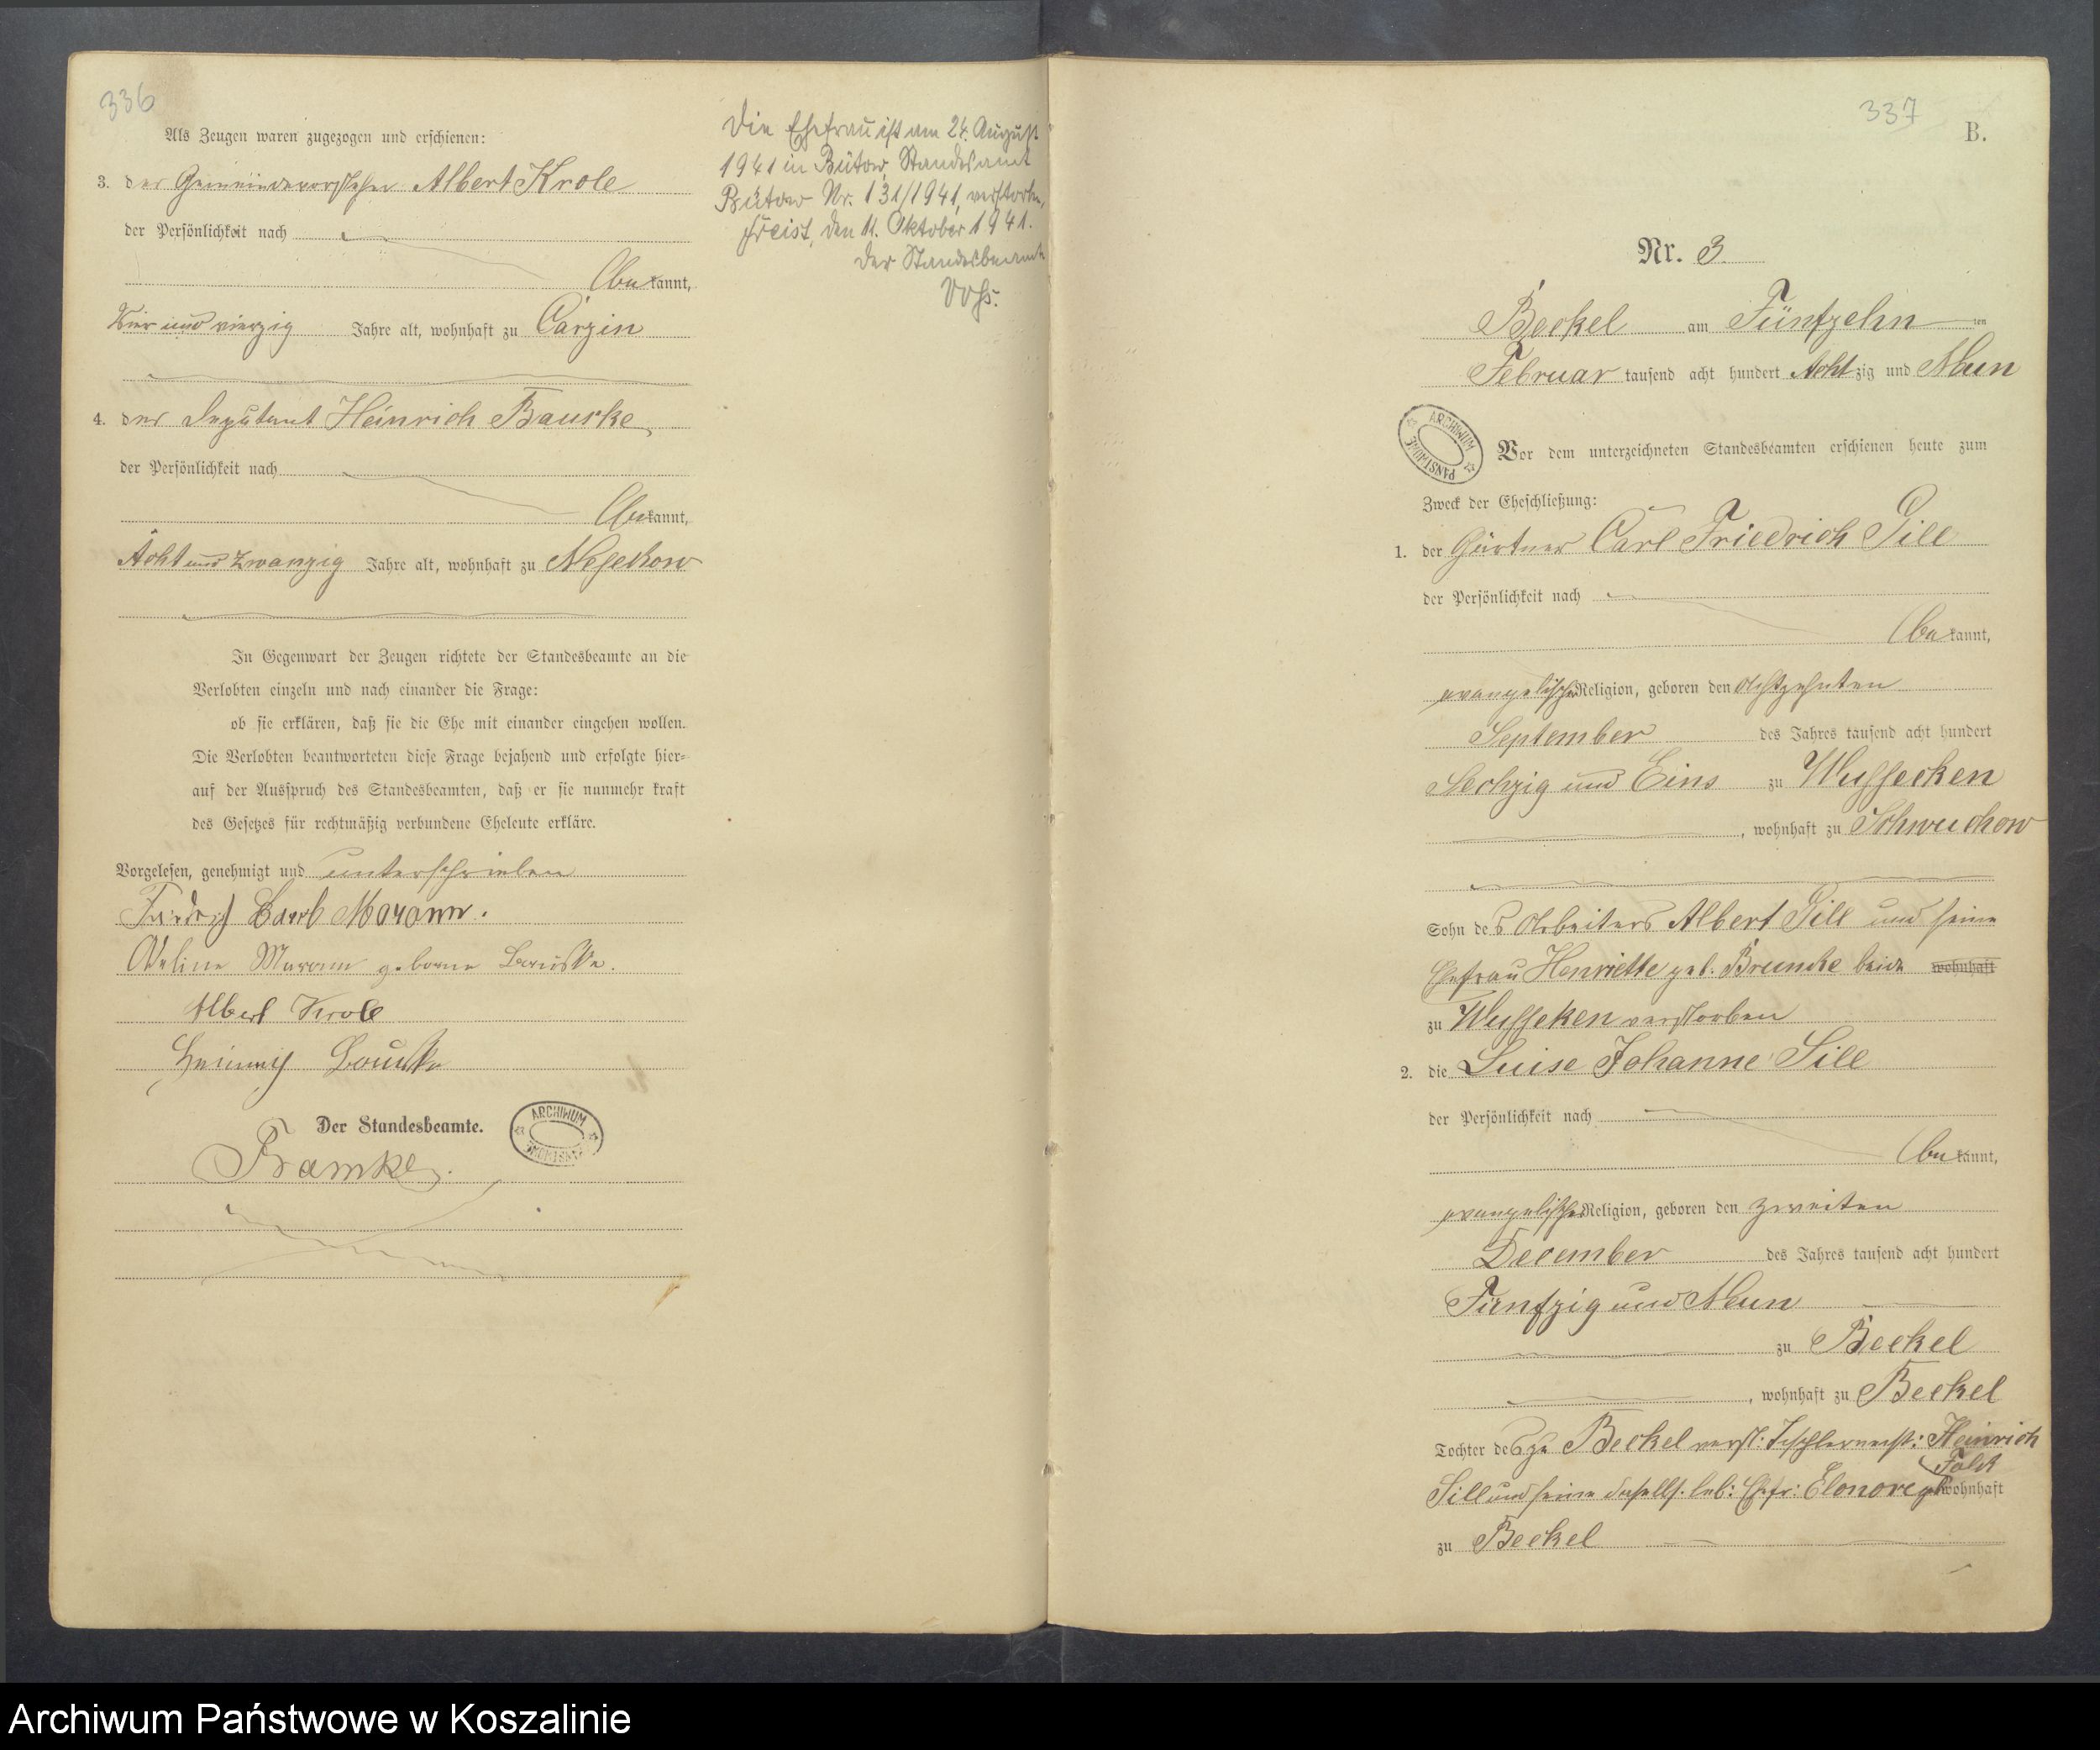 336
Als Zeugen waren zugezogen und erschienen:
3. der Gemeindevorsteher Albert Krole
der Persönlichkeit nach
bekannt,
Vier und vierzig Jahre alt, wohnhaft zu Carzin
4. der Deputant Heinrich Bauske
der Persönlichkeit nach
bekannt,
Acht und zwanzig Jahre alt, wohnhaft zu Nesekow
In Gegenwart der Zeugen richtete der Standesbeamte an die
Verlobten einzeln und nach einander die Frage:
ob sie erklären, daß sie die Ehe mit einander eingehen wollen.
Die Verlobten beantworteten diese Frage bejahend und erfolgte hier=
auf der Ausspruch des Standesbeamten, daß er sie nunmehr kraft
des Gesetzes für rechtmäßig verbundene Eheleute erkläre.
Vorgelesen, genehmigt und unterschrieben
Friedrich Carl Marann.
Adeline Marann geborne Bauske.
Albert Krole
Heinrich Bauske
Der Standesbeamte.
Ramke.
ARCHIWUM
Die Ehefrau ist am 24. August
1941 in Bütow, Standesamt
Bütow Nr. 131/1941, verstorben,
Freist, den 11. Oktober 1941.
Der Standesbeamte
337
B.
Nr. 3.
Beckel am Fünfzehn ten
Februar tausend acht hundert Achtzig und Neun
ARCHIWUM PAŃSTWOWE
Vor dem unterzeichneten Standesbeamten erschienen heute zum
Zweck der Eheschließung:
1. der Gärtner Carl Friedrich Pill
der Persönlichkeit nach
bekannt,
evangelischer Religion, geboren den Achtzehnten
September des Jahres tausend acht hundert
Sechzig und Eins zu Wussecken
, wohnhaft zu Schwuchow
Sohn des Arbeiters Albert Pill und seine
Ehefrau Henriette geb. Bruncke beide wohnhaft
zu Wusseken verstorben
2. die Luise Johanne Sill
der Persönlichkeit nach
bekannt,
evangelischer Religion, geboren den zweiten
December des Jahres tausend acht hundert
Fünfzig und Neun
zu Beckel
, wohnhaft zu Beckel
Tochter des zu Beckel verst. Tischlermeist: Heinrich
Sill und seine daselbst leb: Ehefr: Elonore geb Falk wohnhaft
zu Beckel
Archiwum Państwowe w Koszalinie